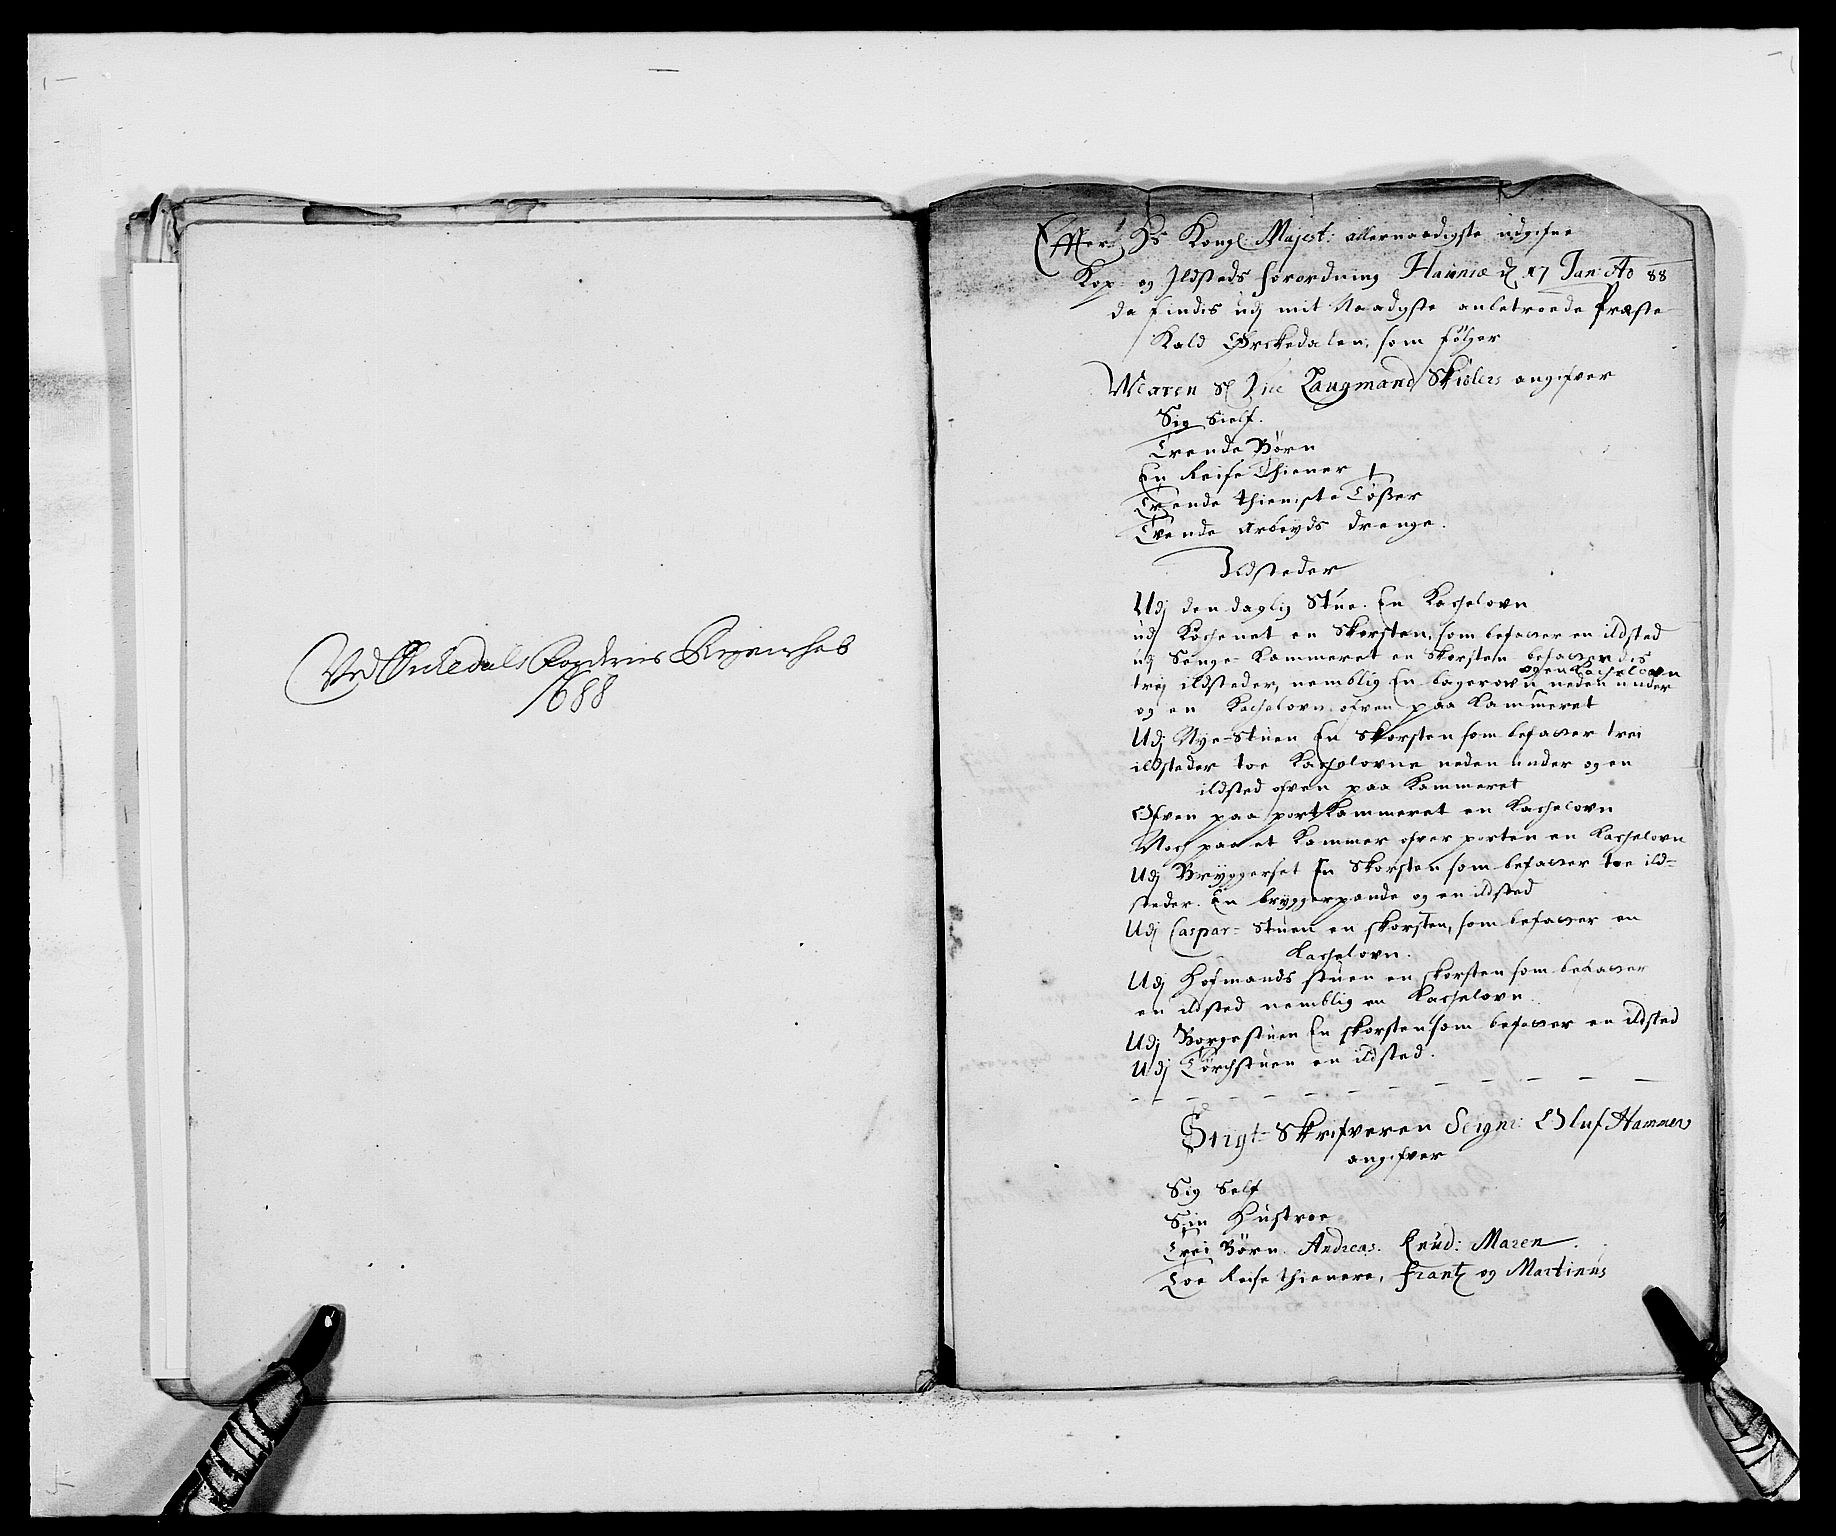 Ved Ørkedals Fogderies Regenschab
1688
Effter Hs Kongl: Majest: allernaadigste udgifne
Kop- og Ildsteds forordning Hauniæ d 17 Jan: Ao 88
da findis udj mit Naadigste anbetroede Præste
Kald Ørckedalen, som følger
Maren Sl Laugmand Skiølers angifver
Sig Sielf.
Trende Børn
En Reise Thiener
Trende thieniste Tøßer
Tvende Arbeyds drenge.
Ildsteder
Udj den daglig Stue. En Kachelovn
udj Køchenet en Skorsten, som befatter en ildsted
udj Senge-Kammeret en Skorsten befattendis
og en Kachelovn
trej ildsteder, nemblig En bagerovn neden under
og en Kachelovn ofven paa Kammeret
Udj Nye-Stuen En Skorsten som befatter trei
ildsteder toe Kachelovne neden under og en
ildsted ofven paa Kammeret
Ofven paa portkammeret en Kachelovn
Noch paa et Kammer ofver porten en Kachelovn
Udj Bryggerset En Skorsten som befatter toe ild-
steder. En bryggerpande og en ildsted
Udj Caspar-Stuen en skorsten, som befatter en
Kachelovn.
Udj Hofmands stuen en skorsten som befatter
en ildsted nemblig en Kachelovn.
Udj Borgestuen En skorsten som befatter en ildsted
Udj Tørchstuen en ildsted.
Stigt-Skrifveren Seign: Oluf Hammer
angifver
Sig Self
Sin Hustroe
Trei Børn. Andreas. Knud: Maren.
Toe Reise thienere, Frantz og Martinus